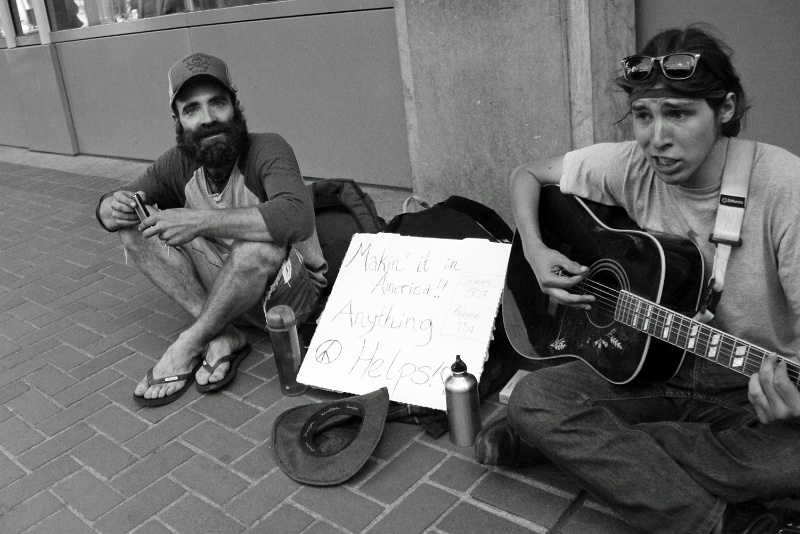 Makin' it in
America!!
Anything
Helps!!
Jokes
50¢
Advice
75¢